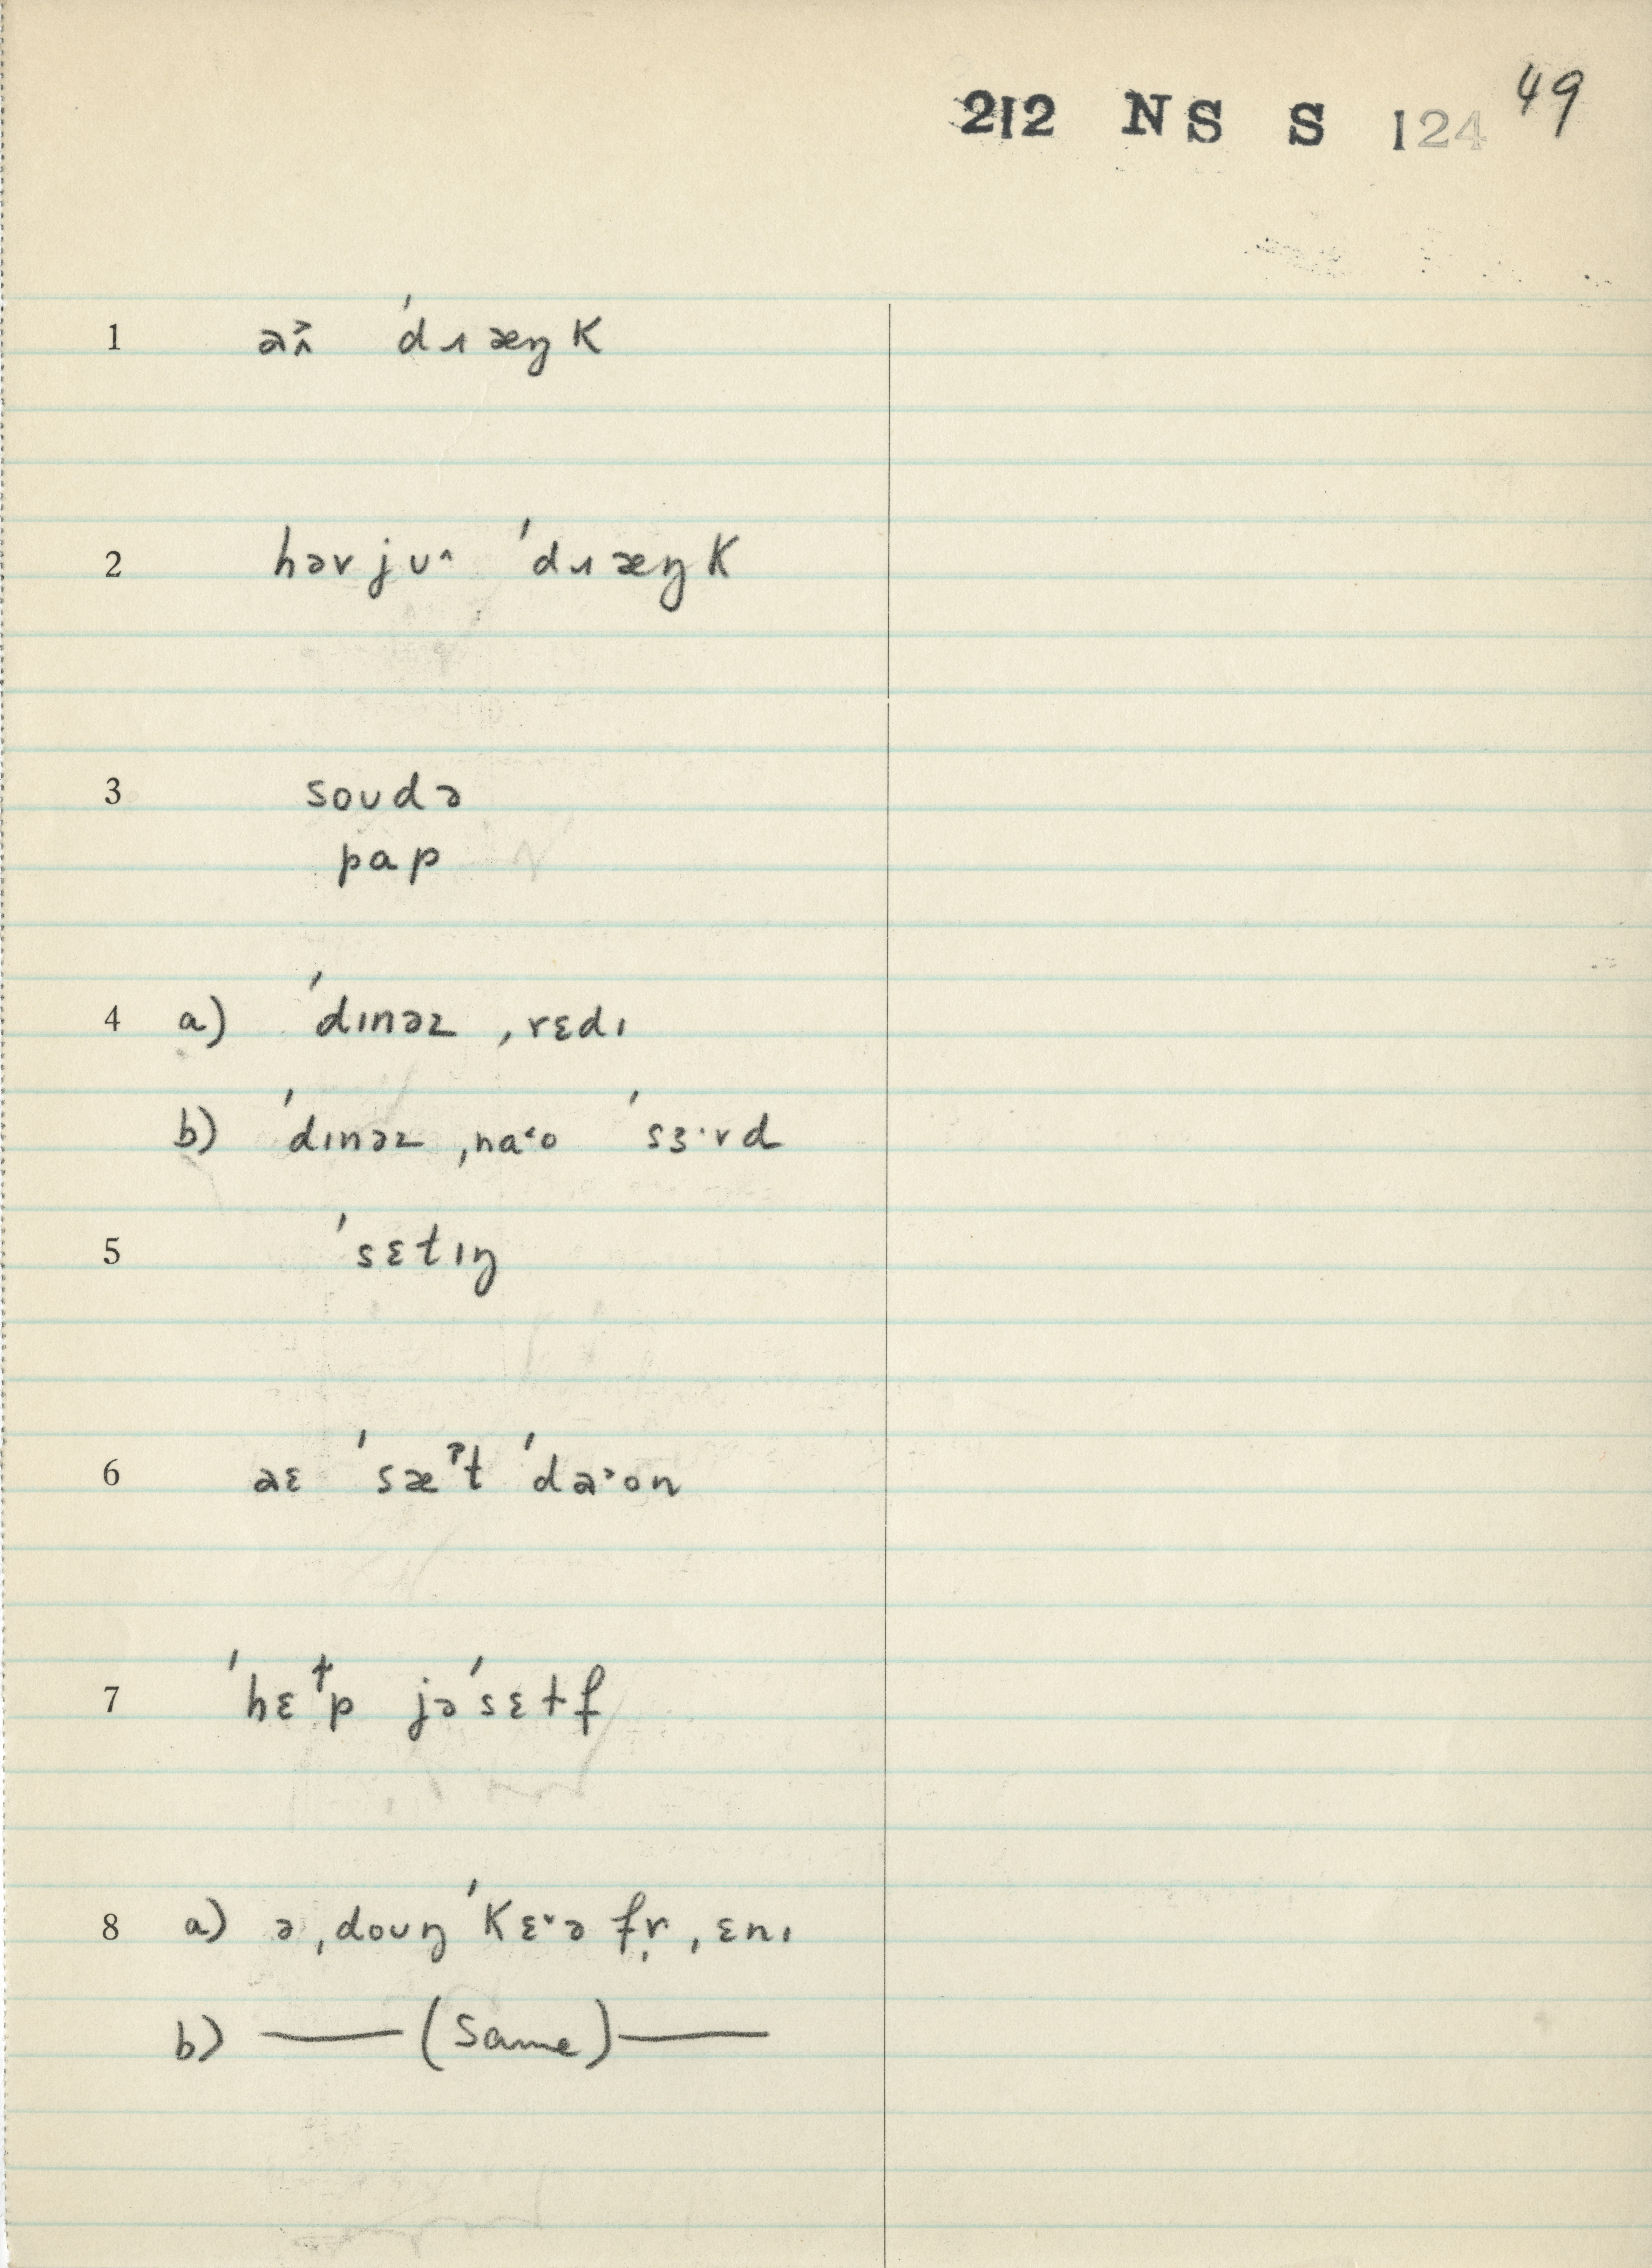 212 NS S 124 49
1 aʌ̂ ˈdɹæŋk
2 hərjʊ^ ˈdɹæŋk
3 soʊdə
pap
4 a) ˈdɪnəz ˌrɛdɪ
b) ˈdɪnəz ˌna˂o ˈsɜ·rd
5 ˈsɛtɪŋ
6 aɛ ˈsæˀt ˈda˃on
7 ˈhɛɫp jəˈsɛtf
8 a) ə ˌdoʊŋ ˈkɛ˅ə fr̩ ˌɛnɪ
b) —— (Same) ——